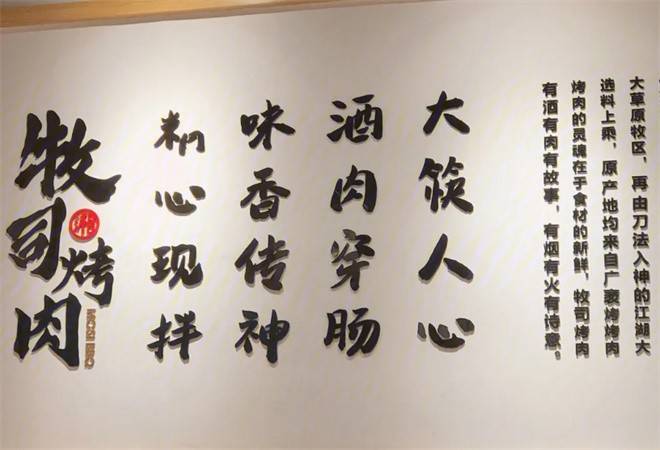 牧司烤肉
MOSI BBQ
心现拌
味香传神
酒肉穿肠
大筷人心
有酒有肉有故事，有烟有火有诗意。
烤肉的灵魂在于食材的新鲜，牧司烤肉
选料上乘，原产地均来自广袤烤烤肉
大草原牧区，再由刀法入神的江湖大